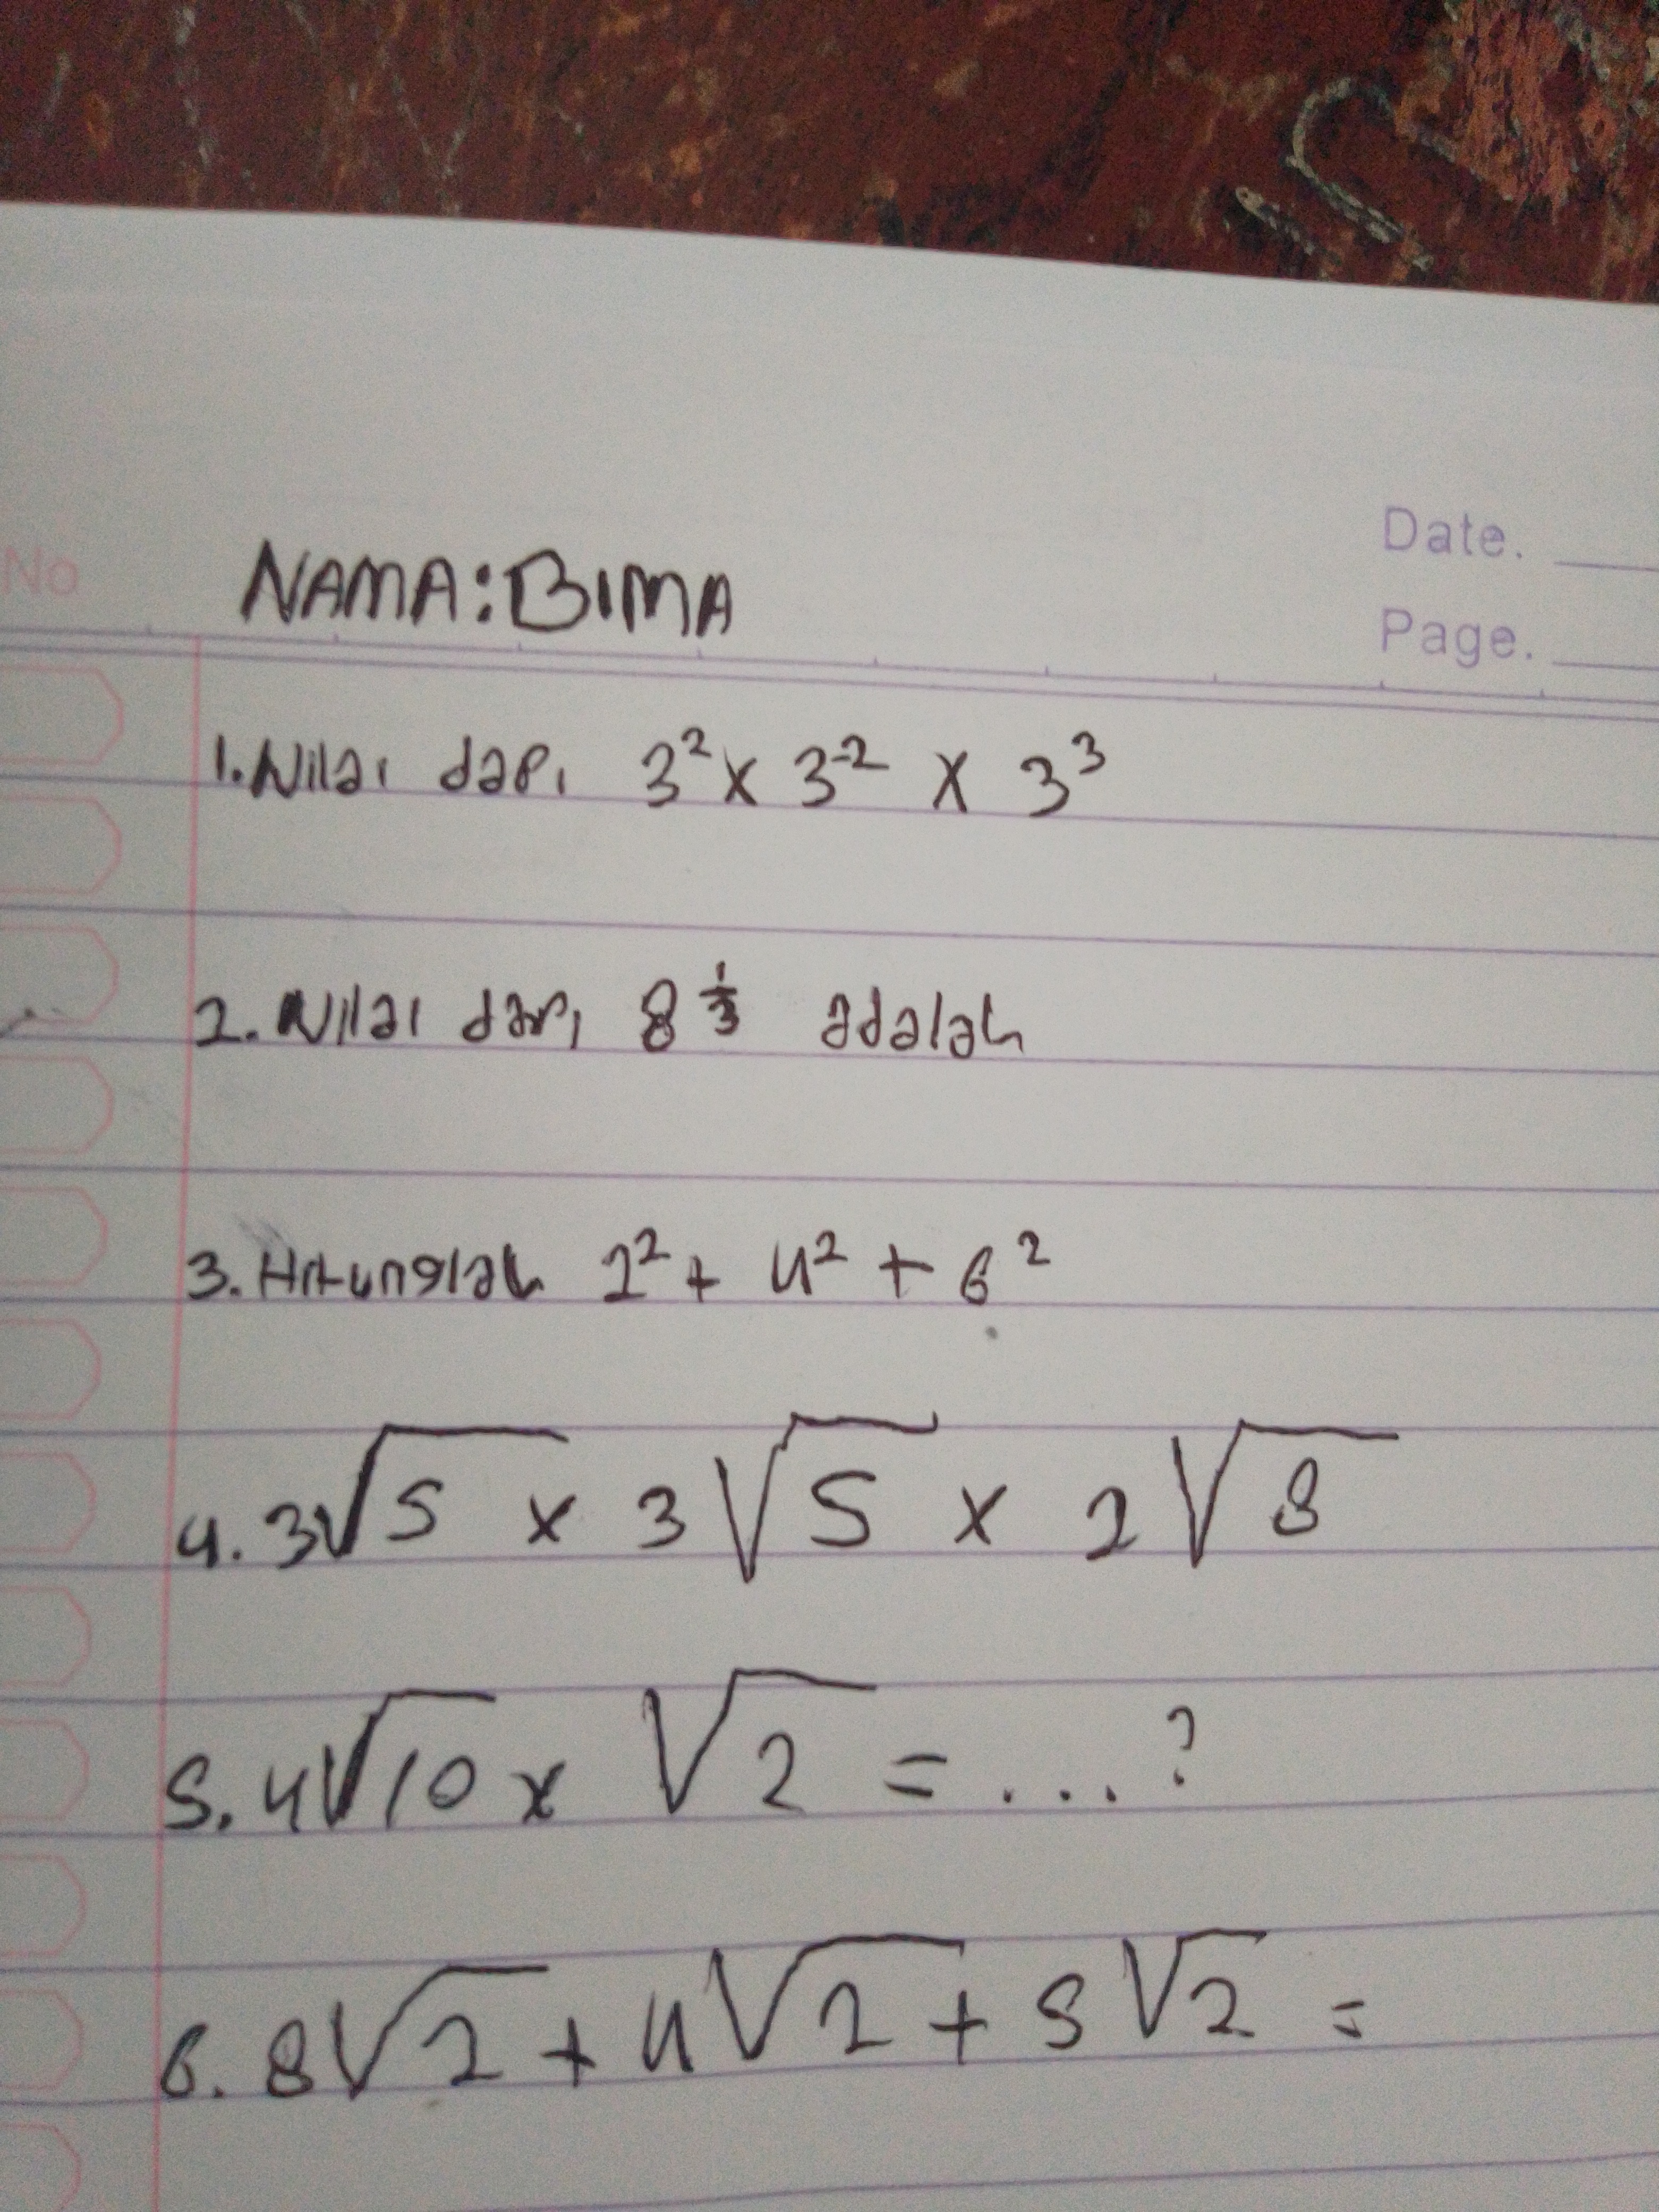 No
Date.
Page.
NAMA: BIMA
1. Nilai dari 3² x 3⁻² x 3³
2. Nilai dari 8^⅓ adalah
3. Hitunglah 2² + 4² + 6²
4. 3√5 x 3√5 x 2√8
5. 4√10 x √2 = ...?
6. 8√2 + 4√2 + 5√2 =